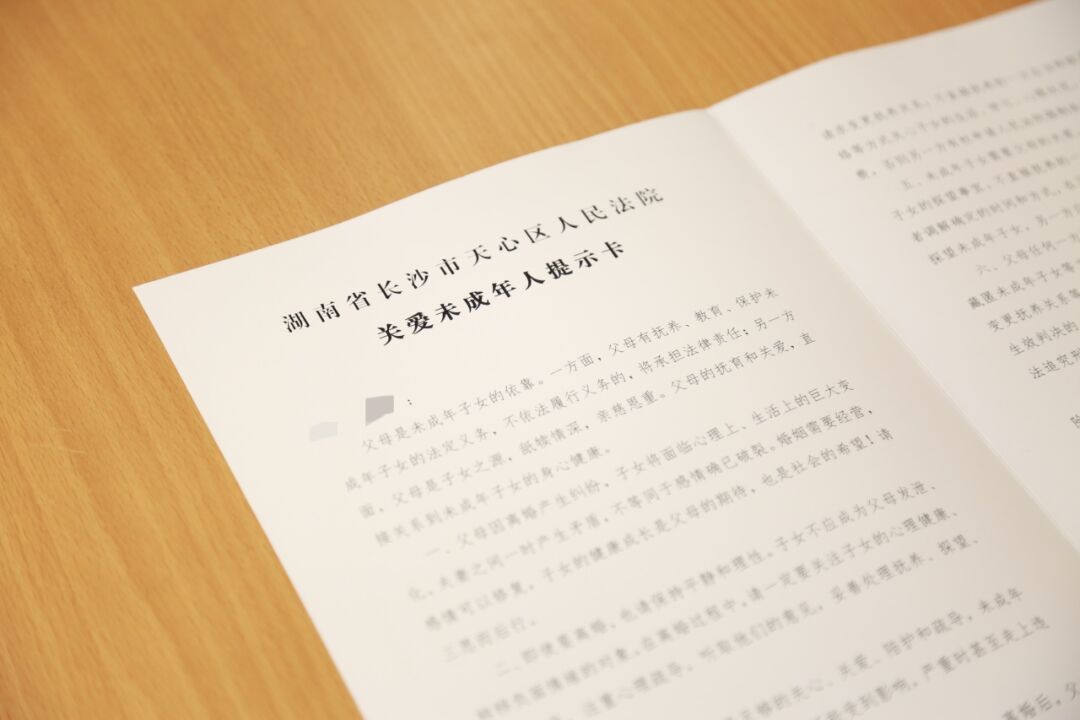 湖南省长沙市天心区人民法院
关爱未成年人提示卡
：
父母是未成年子女的依靠。一方面，父母有抚养、教育、保护未
成年子女的法定义务，不依法履行义务的，将承担法律责任；另一方
面，父母是子女之源，舐犊情深，亲慈恩重。父母的抚育和关爱，直
接关系到未成年子女的身心健康。
一、父母因离婚产生纠纷，子女将面临心理上、生活上的巨大变
化。夫妻之间一时产生矛盾，不等同于感情确已破裂。婚姻需要经营，
感情可以修复，子女的健康成长是父母的期待，也是社会的希望！请
三思而后行。
二、即使要离婚，也请保持平静和理性。子女不应成为父母发泄、
负面情绪的对象。在离婚过程中，请一定要关注子女的心理健康、
注重心理疏导，听取他们的意见，妥善处理抚养、探望、
的关心、关爱、陪护和疏导，未成年
受到影响，严重时甚至走上违
离婚后，父
请求变更抚养关系；不直接抚养的一方
络等方式关心子女的生活、学习、心理
费，否则另一方有权申请人民法院强制
五、未成年子女需要父母的关爱
子女的探望事宜。不直接抚养的一
者调解确定的时间和方式，在
探望未成年子女，另一方
六、父母任何一方
藏匿未成年子女等
变更抚养关系等
生效判决的
法追究刑